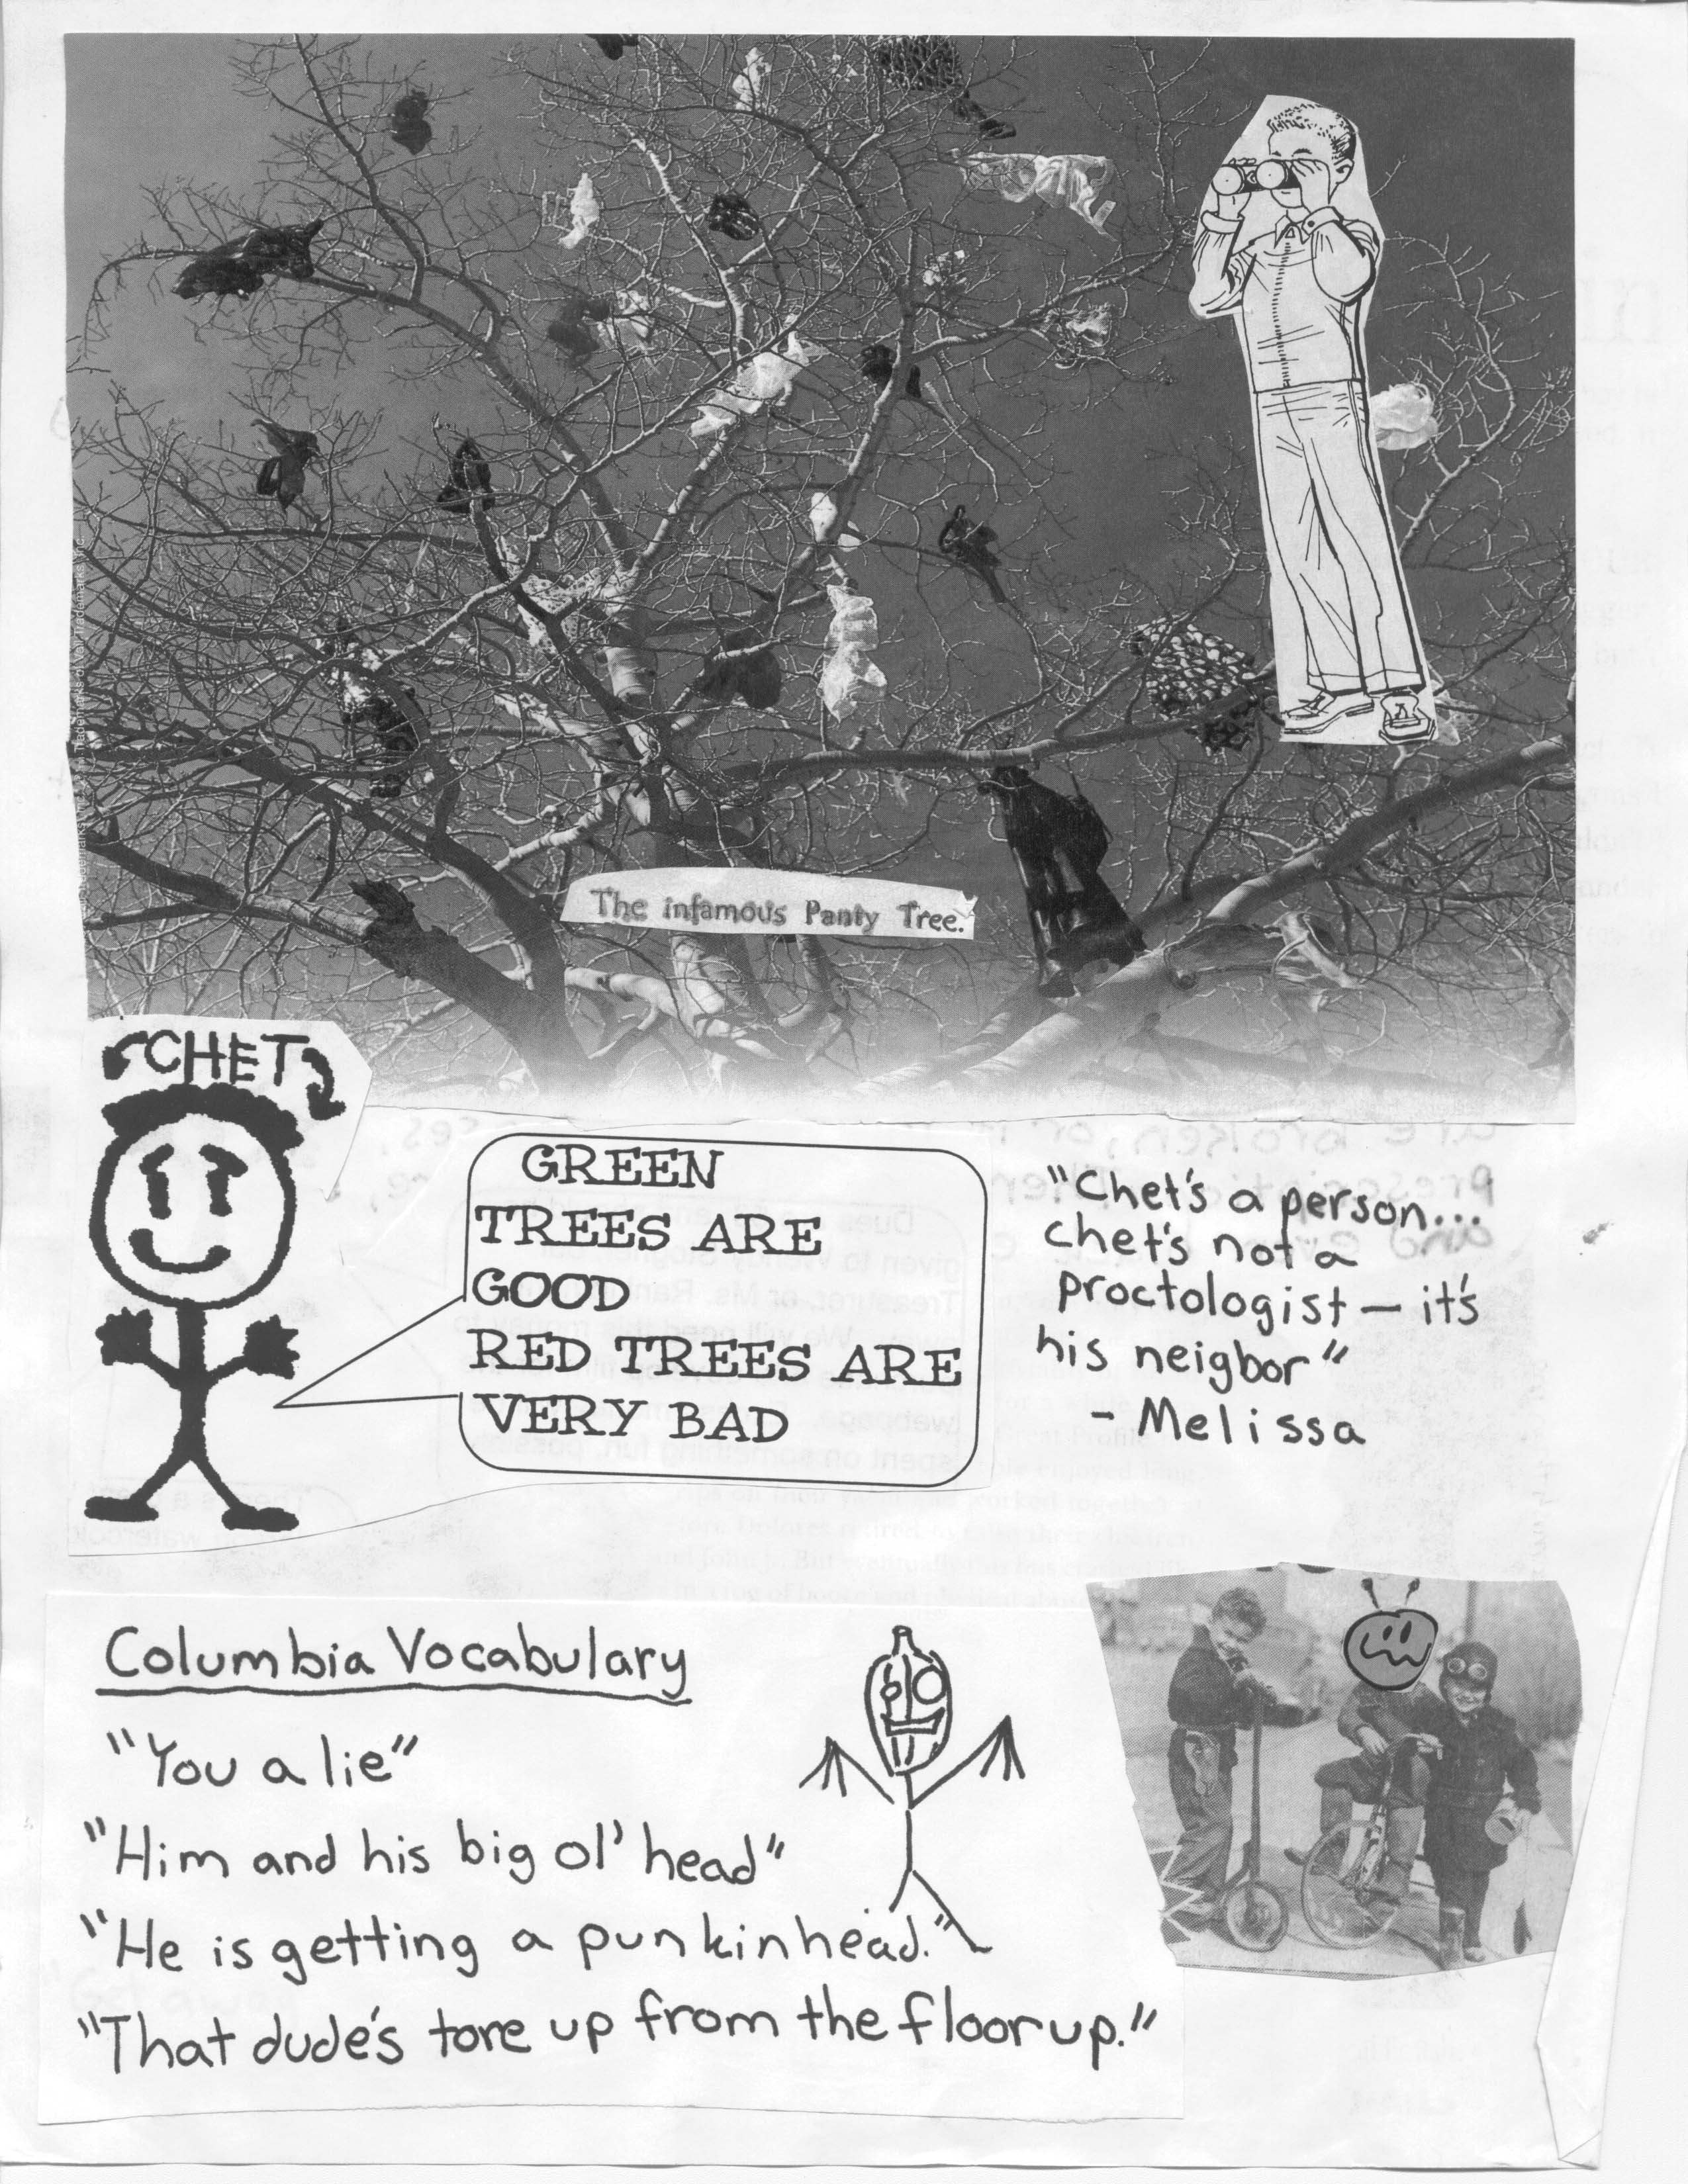 The infamous Panty Tree.
CHET
GREEN
TREES ARE
GOOD
RED TREES ARE
VERY BAD
"Chet's a person...
chet's not a
proctologist — it's
his neigbor"
- Melissa
Columbia Vocabulary
"You a lie"
"Him and his big ol' head"
"He is getting a punkinhead."
"That dude's tore up from the floor up."